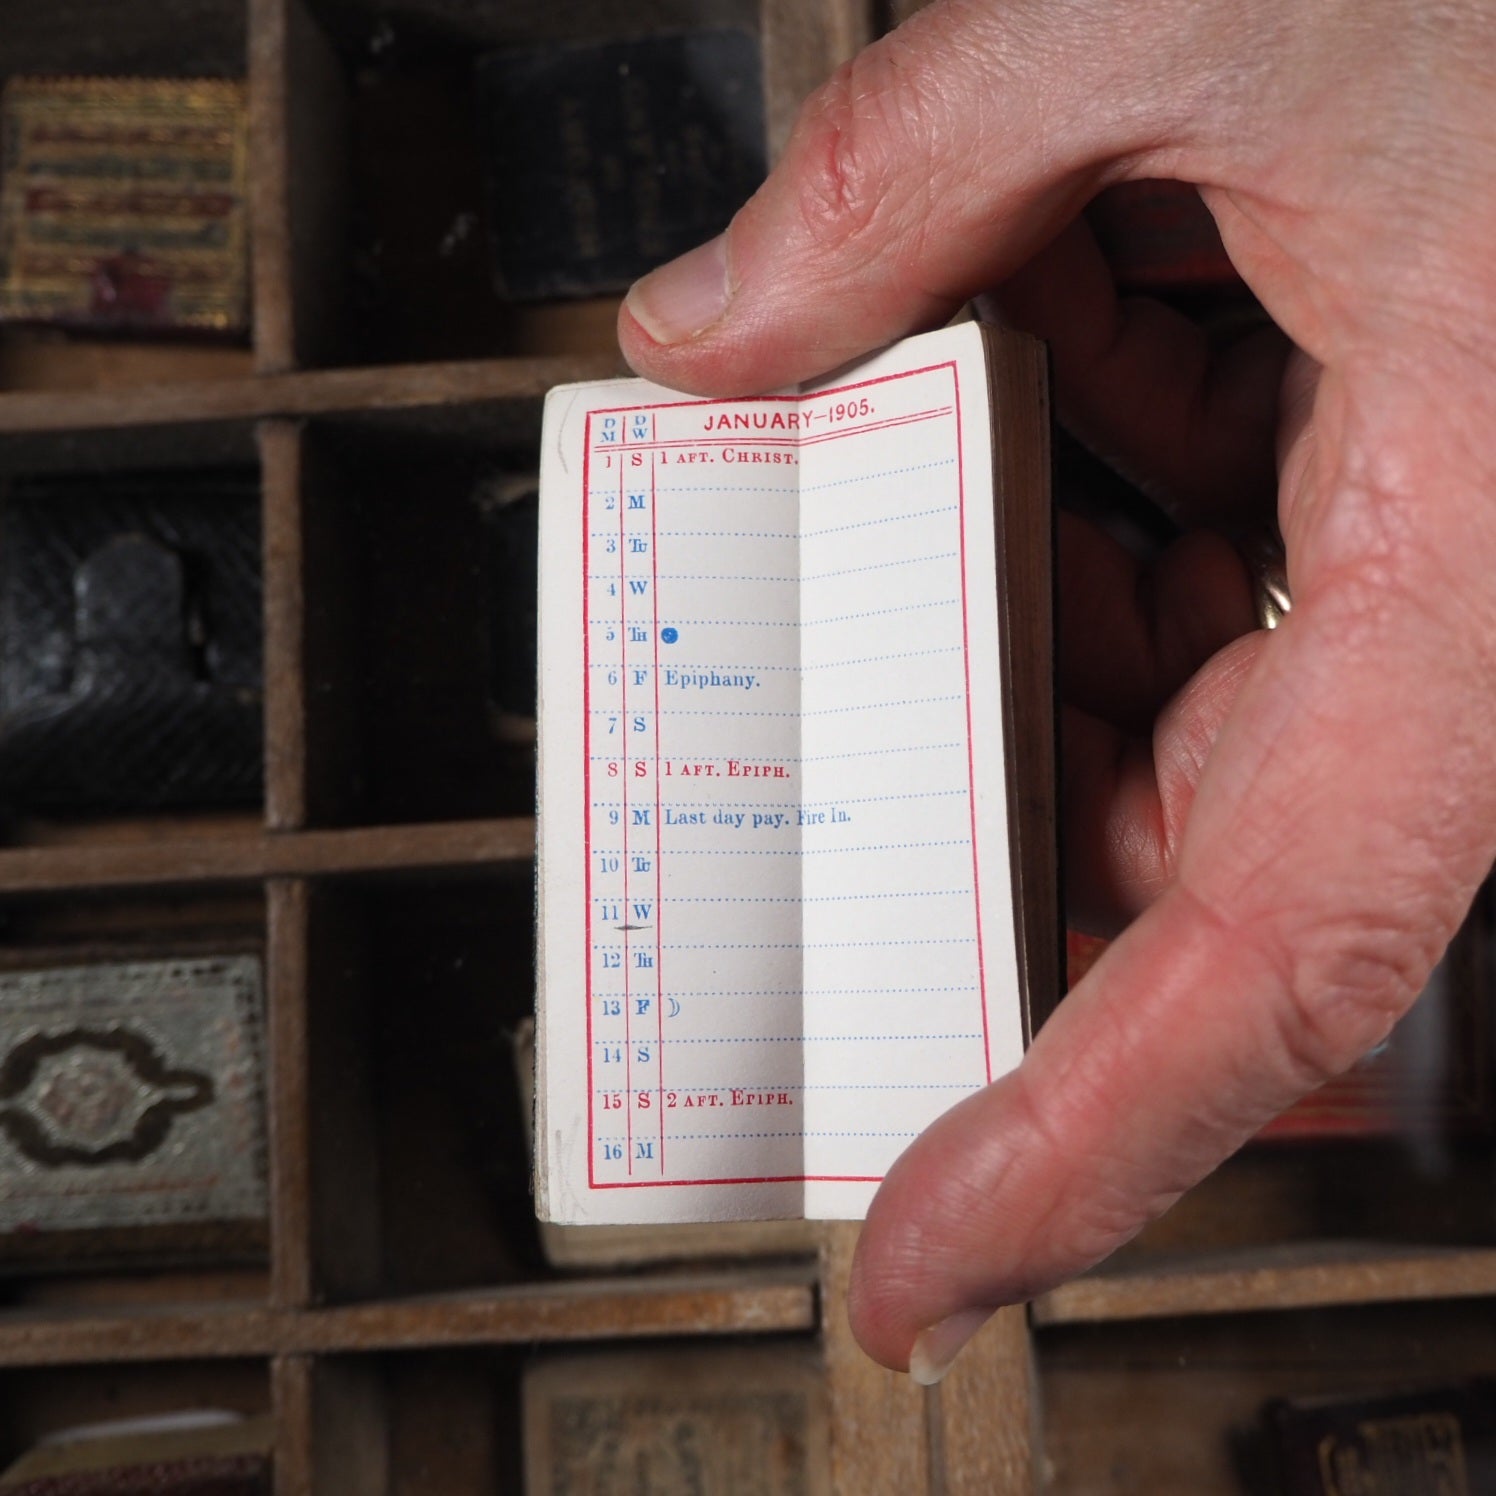 D D JANUARY—1905.
M W
1 S 1 AFT. CHRIST.
2 M
3 TU
4 W
5 TH
6 F Epiphany.
7 S
8 S 1 AFT. EPIPH.
9 M Last day pay. Fire In.
10 TU
11 W
12 TH
13 F ☽
14 S
15 S 2 AFT. EPIPH.
16 M